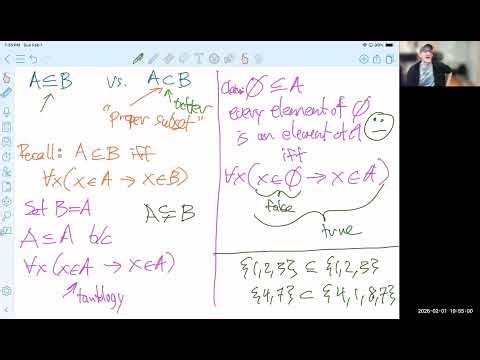 1:55 PM Sun Feb 1
A ⊆ B vs. A ⊂ B
better
"proper subset"
Recall: A ⊆ B iff
∀x(x∈A → x∈B)
Set B=A
A ⊊ B
A ⊆ A b/c
∀x(x∈A → x∈A)
tautology
Claim: ∅ ⊆ A
every element of ∅
is an element of A
iff
∀x(x∈∅ → x∈A)
false
true
{1,2,3} ⊆ {1,2,3}
{4,7} ⊂ {4,1,8,7}
2026-02-01 19:55:00